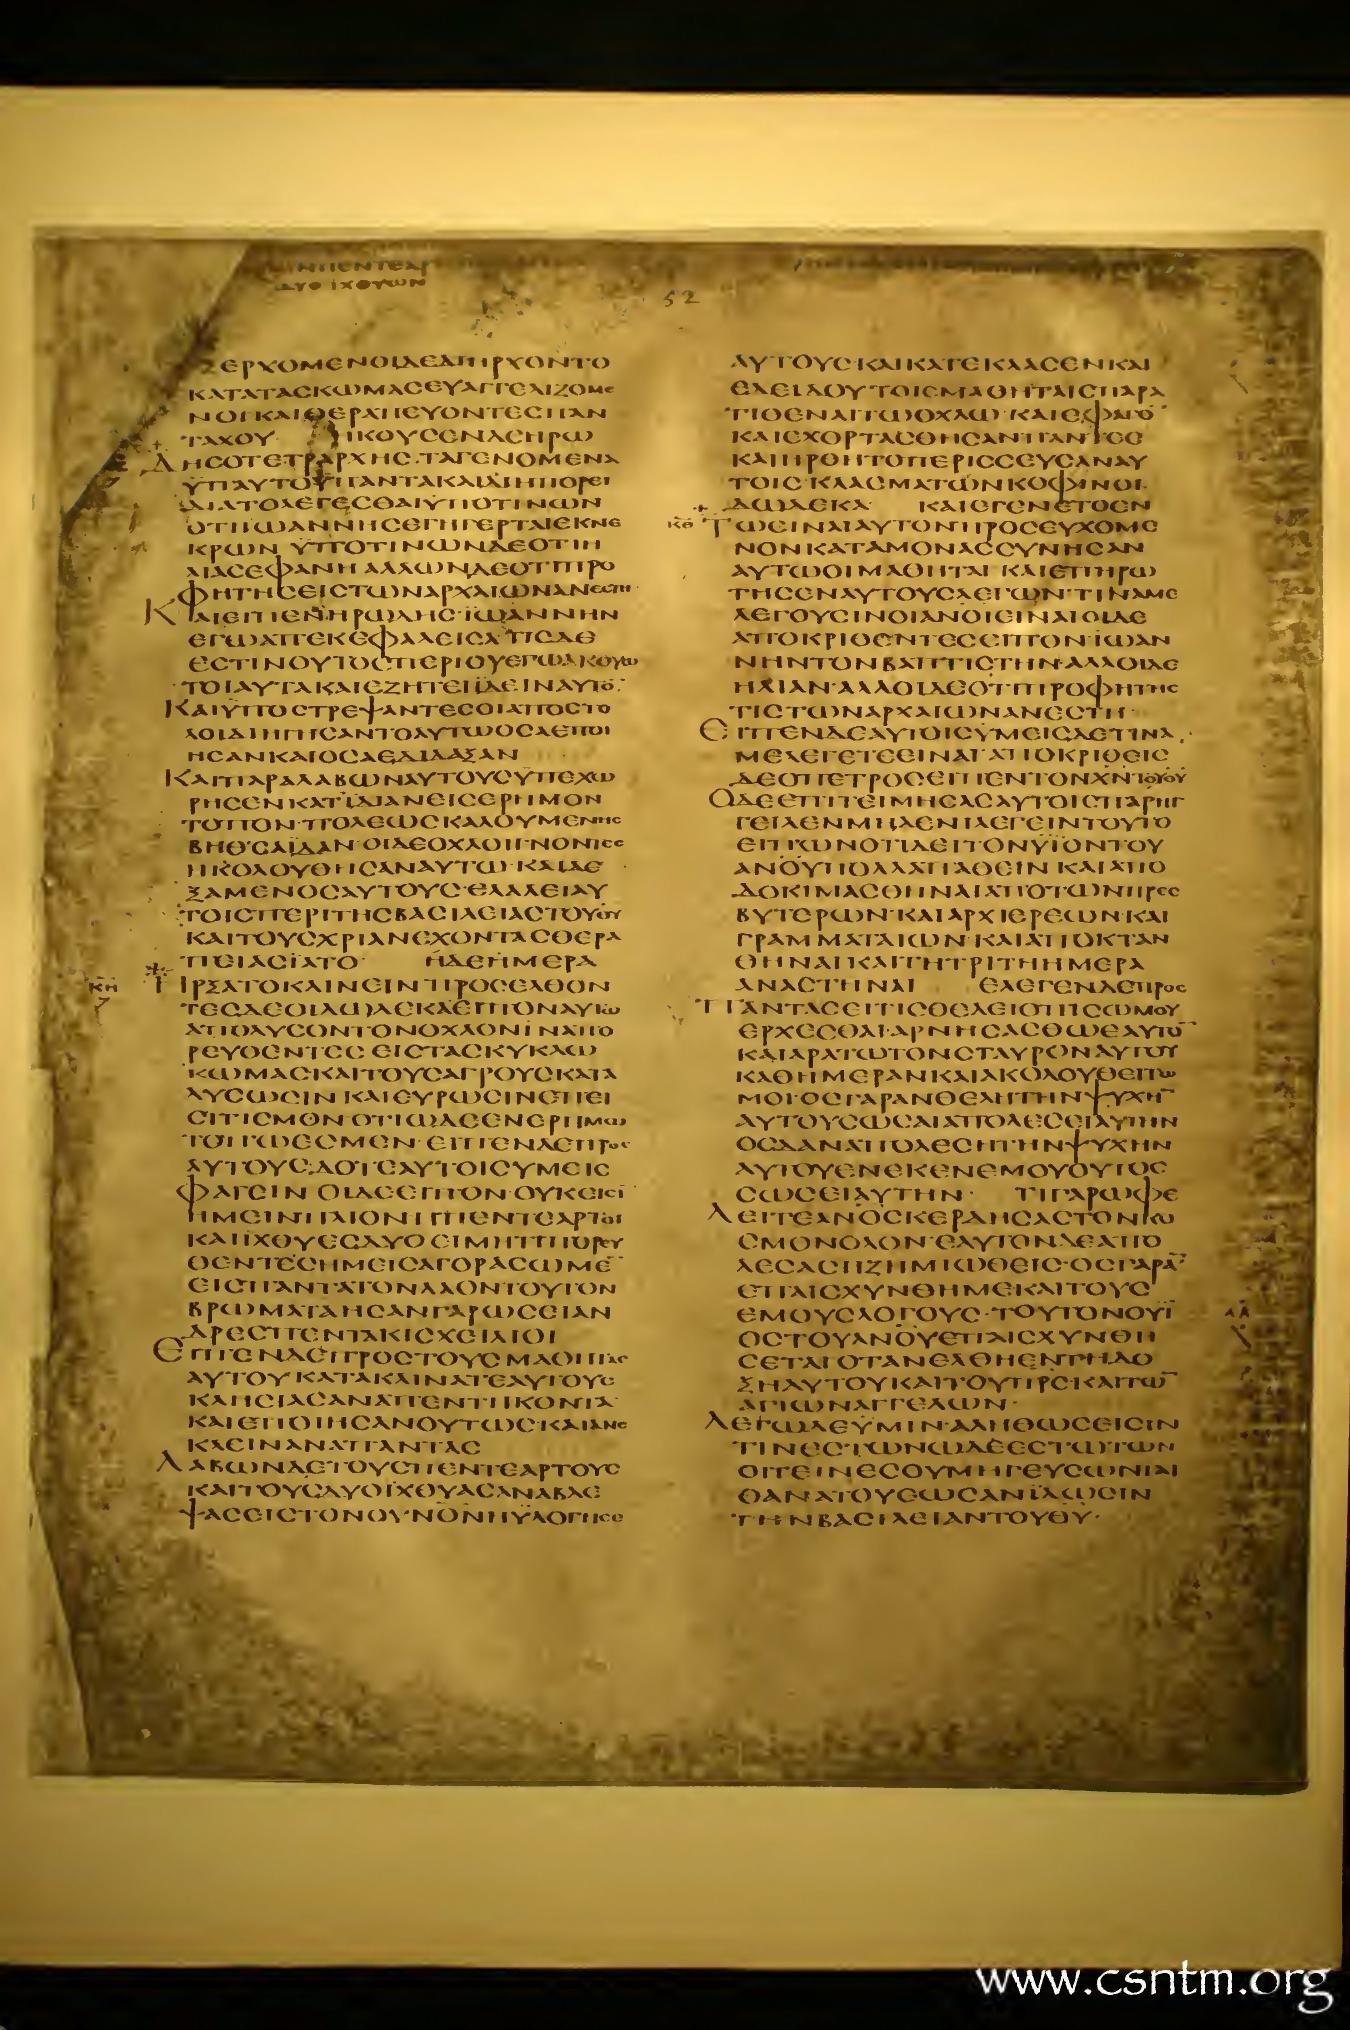 ΔΥΟ ΙΧΘΥΩΝ
52
ΞΕΡΧΟΜΕΝΟΙΔΕΔΙΗΡΧΟΝΤΟ
ΚΑΤΑΤΑΣΚΩΜΑΣΕΥΑΓΓΕΛΙΖΟΜΕ
ΝΟΙΚΑΙΘΕΡΑΠΕΥΟΝΤΕΣΠΑΝ
ΤΑΧΟΥ ΗΚΟΥΣΕΝΔΕΗΡΩ
ΔΗΣΟΤΕΤΡΑΡΧΗΣ·ΤΑΓΕΝΟΜΕΝΑ
ΥΠΑΥΤΟΥΠΑΝΤΑΚΑΙΔΙΗΠΟΡΕΙ
ΔΙΑΤΟΛΕΓΕΣΘΑΙΥΠΟΤΙΝΩΝ
ΟΤΙΙΩΑΝΝΗΣΕΓΗΓΕΡΤΑΙΕΚΝΕ
ΚΡΩΝ ΥΠΟΤΙΝΩΝΔΕΟΤΙΗ
ΛΙΑΣΕΦΑΝΗΑΛΛΩΝΔΕΟΤΙΠΡΟ
ΦΗΤΗΣΕΙΣΤΩΝΑΡΧΑΙΩΝΑΝΕΣΤΗ
ΚΑΙΕΙΠΕΝΗΡΩΔΗΣ·ΪΩΑΝΝΗΝ
ΕΓΩΑΠΕΚΕΦΑΛΕΙΣΑΤΙΣΔΕ
ΕΣΤΙΝΟΥΤΟΣΠΕΡΙΟΥΕΓΩΑΚΟΥΩ
ΤΟΙΑΥΤΑΚΑΙΕΖΗΤΕΙΙΔΕΙΝΑΥΤΟ̅
ΚΑΙΫΠΟΣΤΡΕΨΑΝΤΕΣΟΙΑΠΟΣΤΟ
ΛΟΙΔΙΗΓΗΣΑΝΤΟΑΥΤΩΟΣΑΕΠΟΙ
ΗΣΑΝΚΑΙΟΣΑΕΔΙΔΑΞΑΝ
ΚΑΙΠΑΡΑΛΑΒΩΝΑΥΤΟΥΣΫΠΕΧΩ
ΡΗΣΕΝΚΑΤΙΔΙΑΝΕΙΣΕΡΗΜΟΝ
ΤΟΠΟΝ·ΠΟΛΕΩΣΚΑΛΟΥΜΕΝΗΣ
ΒΗΘΣΑΪΔΑΝ·ΟΙΔΕΟΧΛΟΙΓΝΟΝΤΕΣ
ΗΚΟΛΟΥΘΗΣΑΝΑΥΤΩ·ΚΑΙΔΕ
ΞΑΜΕΝΟΣΑΥΤΟΥΣ·ΕΛΑΛΕΙΑΥ
ΤΟΙΣΠΕΡΙΤΗΣΒΑΣΙΛΕΙΑΣΤΟΥΘΥ
ΚΑΙΤΟΥΣΧΡΙΑΝΕΧΟΝΤΑΣΘΕΡΑ
ΠΕΙΑΣΙΑΤΟ ΗΔΕΗΜΕΡΑ
ΚΗ ΗΡΞΑΤΟΚΛΙΝΕΙΝΠΡΟΣΕΛΘΟΝ
ΤΕΣΔΕΟΙΔΩΔΕΚΑΕΙΠΟΝΑΥΤΩ
ΑΠΟΛΥΣΟΝΤΟΝΟΧΛΟΝΙΝΑΠΟ
ΡΕΥΘΕΝΤΕΣ ΕΙΣΤΑΣΚΥΚΛΩ
ΚΩΜΑΣΚΑΙΤΟΥΣΑΓΡΟΥΣΚΑΤΑ
ΛΥΣΩΣΙΝ ΚΑΙΕΥΡΩΣΙΝΕΠΕΙ
ΣΙΤΙΣΜΟΝ ΟΤΙΩΔΕΕΝΕΡΗΜΩ
ΤΟΠΩΕΣΜΕΝ·ΕΙΠΕΝΔΕΠΡΟΣ
ΑΥΤΟΥΣ·ΔΟΤΕΑΥΤΟΙΣΥΜΕΙΣ
ΦΑΓΕΙΝ ΟΙΔΕΕΙΠΟΝ·ΟΥΚΕΙΣΙ
ΗΜΕΙΝΠΛΙΟΝΗΠΕΝΤΕΑΡΤΟΙ
ΚΑΙΪΧΘΥΕΣΔΥΟΕΙΜΗΤΙΠΟΡΕΥ
ΘΕΝΤΕΣΗΜΕΙΣΑΓΟΡΑΣΩΜΕ̅
ΕΙΣΠΑΝΤΑΤΟΝΛΑΟΝΤΟΥΤΟΝ
ΒΡΩΜΑΤΑΗΣΑΝΓΑΡΩΣΕΙΑΝ
ΔΡΕΣΠΕΝΤΑΚΙΣΧΕΙΛΙΟΙ
ΕΙΠΕΝΔΕΠΡΟΣΤΟΥΣΜΑΘΗΤΑΣ
ΑΥΤΟΥΚΑΤΑΚΛΙΝΑΤΕΑΥΤΟΥΣ
ΚΛΗΣΙΑΣΑΝΑΠΕΝΤΗΚΟΝΤΑ
ΚΑΙΕΠΟΙΗΣΑΝΟΥΤΩΣ·ΚΑΙΑΝΕ
ΚΛΕΙΝΑΝΑΠΑΝΤΑΣ
ΛΑΒΩΝΔΕΤΟΥΣΠΕΝΤΕΑΡΤΟΥΣ
ΚΑΙΤΟΥΣΔΥΟΪΧΘΥΑΣΑΝΑΒΛΕ
ΨΑΣΕΙΣΤΟΝΟΥΝΟΝΗΥΛΟΓΗΣΕ
ΑΥΤΟΥΣ·ΚΑΙΚΑΤΕΚΛΑΣΕΝΚΑΙ
ΕΔΕΙΔΟΥΤΟΙΣΜΑΘΗΤΑΙΣΠΑΡΑ
ΤΙΘΕΝΑΙΤΩΟΧΛΩ·ΚΑΙΕΦΑΓΟ̅
ΚΑΙΕΧΟΡΤΑΣΘΗΣΑΝΠΑΝΤΕΣ
ΚΑΙΗΡΘΗΤΟΠΕΡΙΣΣΕΥΣΑΝΑΥ
ΤΟΙΣ·ΚΛΑΣΜΑΤΩΝΚΟΦΙΝΟΙ
ΔΩΔΕΚΑ ΚΑΙΕΓΕΝΕΤΟΕΝ
ΚΘ ΤΩΕΙΝΑΙΑΥΤΟΝΠΡΟΣΕΥΧΟΜΕ
ΝΟΝΚΑΤΑΜΟΝΑΣΣΥΝΗΣΑΝ
ΑΥΤΩΟΙΜΑΘΗΤΑΙ ΚΑΙΕΠΗΡΩ
ΤΗΣΕΝΑΥΤΟΥΣΛΕΓΩΝ·ΤΙΝΑΜΕ
ΛΕΓΟΥΣΙΝΟΙΑΝΟΙΕΙΝΑΙΟΙΔΕ
ΑΠΟΚΡΙΘΕΝΤΕΣΕΙΠΟΝ·ΪΩΑΝ
ΝΗΝΤΟΝΒΑΠΤΙΣΤΗΝ·ΑΛΛΟΙΔΕ
ΗΛΙΑΝ·ΑΛΛΟΙΔΕΟΤΙΠΡΟΦΗΤΗΣ
ΤΙΣΤΩΝΑΡΧΑΙΩΝΑΝΕΣΤΗ·
ΕΙΠΕΝΔΕΑΥΤΟΙΣΥΜΕΙΣΔΕΤΙΝΑ
ΜΕΛΕΓΕΤΕΕΙΝΑΙ·ΑΠΟΚΡΙΘΕΙΣ
ΔΕΟΠΕΤΡΟΣΕΙΠΕΝΤΟΝΧΝΤΟΥΘΥ
ΟΔΕΕΠΙΤΕΙΜΗΣΑΣΑΥΤΟΙΣΠΑΡΗΓ
ΓΕΙΛΕΝΜΗΔΕΝΙΛΕΓΕΙΝΤΟΥΤΟ
ΕΙΠΩΝΟΤΙΔΕΙΤΟΝΫΪΟΝΤΟΥ
ΑΝΟΥΠΟΛΛΑΠΑΘΕΙΝ ΚΑΙΑΠΟ
ΔΟΚΙΜΑΣΘΗΝΑΙΑΠΟΤΩΝΠΡΕΣ
ΒΥΤΕΡΩΝ·ΚΑΙΑΡΧΙΕΡΕΩΝ·ΚΑΙ
ΓΡΑΜΜΑΤΑΙΩΝ·ΚΑΙΑΠΟΚΤΑΝ
ΘΗΝΑΙΚΑΙΤΗΤΡΙΤΗΗΜΕΡΑ
ΑΝΑΣΤΗΝΑΙ ΕΛΕΓΕΝΔΕΠΡΟΣ
ΠΑΝΤΑΣΕΙΤΙΣΘΕΛΕΙΟΠΙΣΩΜΟΥ
ΕΡΧΕΣΘΑΙ·ΑΡΝΗΣΑΣΘΩΕΑΥΤΟ̅
ΚΑΙΑΡΑΤΩΤΟΝΣΤΑΥΡΟΝΑΥΤΟΥ
ΚΑΘΗΜΕΡΑΝΚΑΙΑΚΟΛΟΥΘΕΙΤΩ
ΜΟΙ·ΟΣΓΑΡΑΝΘΕΛΗΤΗΝΨΥΧΗ̅
ΑΥΤΟΥΣΩΣΑΙΑΠΟΛΕΣΕΙΑΥΤΗΝ
ΟΣΔΑΝΑΠΟΛΕΣΗΤΗΝΨΥΧΗΝ
ΑΥΤΟΥΕΝΕΚΕΝΕΜΟΥΟΥΤΟΣ
ΣΩΣΕΙΑΥΤΗΝ· ΤΙΓΑΡΩΦΕ
ΛΕΙΤΕΑΝΟΣΚΕΡΔΗΣΑΣΤΟΝΚΟ
ΣΜΟΝΟΛΟΝ·ΕΑΥΤΟΝΔΕΑΠΟ
ΛΕΣΑΣΗΖΗΜΙΩΘΕΙΣ·ΟΣΓΑΡΑ̅
ΕΠΑΙΣΧΥΝΘΗΜΕΚΑΙΤΟΥΣ
ΕΜΟΥΣΛΟΓΟΥΣ·ΤΟΥΤΟΝΟΥΪ
ΟΣΤΟΥΑΝΟΥΕΠΑΙΣΧΥΝΘΗ
ΣΕΤΑΙΟΤΑΝΕΛΘΗΕΝΤΗΔΟ
ΞΗΑΥΤΟΥΚΑΙΤΟΥΠΡΣ·ΚΑΙΤΩ̅
ΑΓΙΩΝΑΓΓΕΛΩΝ·
ΛΕΓΩΔΕΫΜΙΝ·ΑΛΗΘΩΣΕΙΣΙΝ
ΤΙΝΕΣΤΩΝΩΔΕΕΣΤΩΤΩΝ
ΟΙΤΕΙΝΕΣΟΥΜΗΓΕΥΣΩΝΤΑΙ
ΘΑΝΑΤΟΥΕΩΣΑΝΪΔΩΣΙΝ
ΤΗΝΒΑΣΙΛΕΙΑΝΤΟΥΘΥ·
www.csntm.org